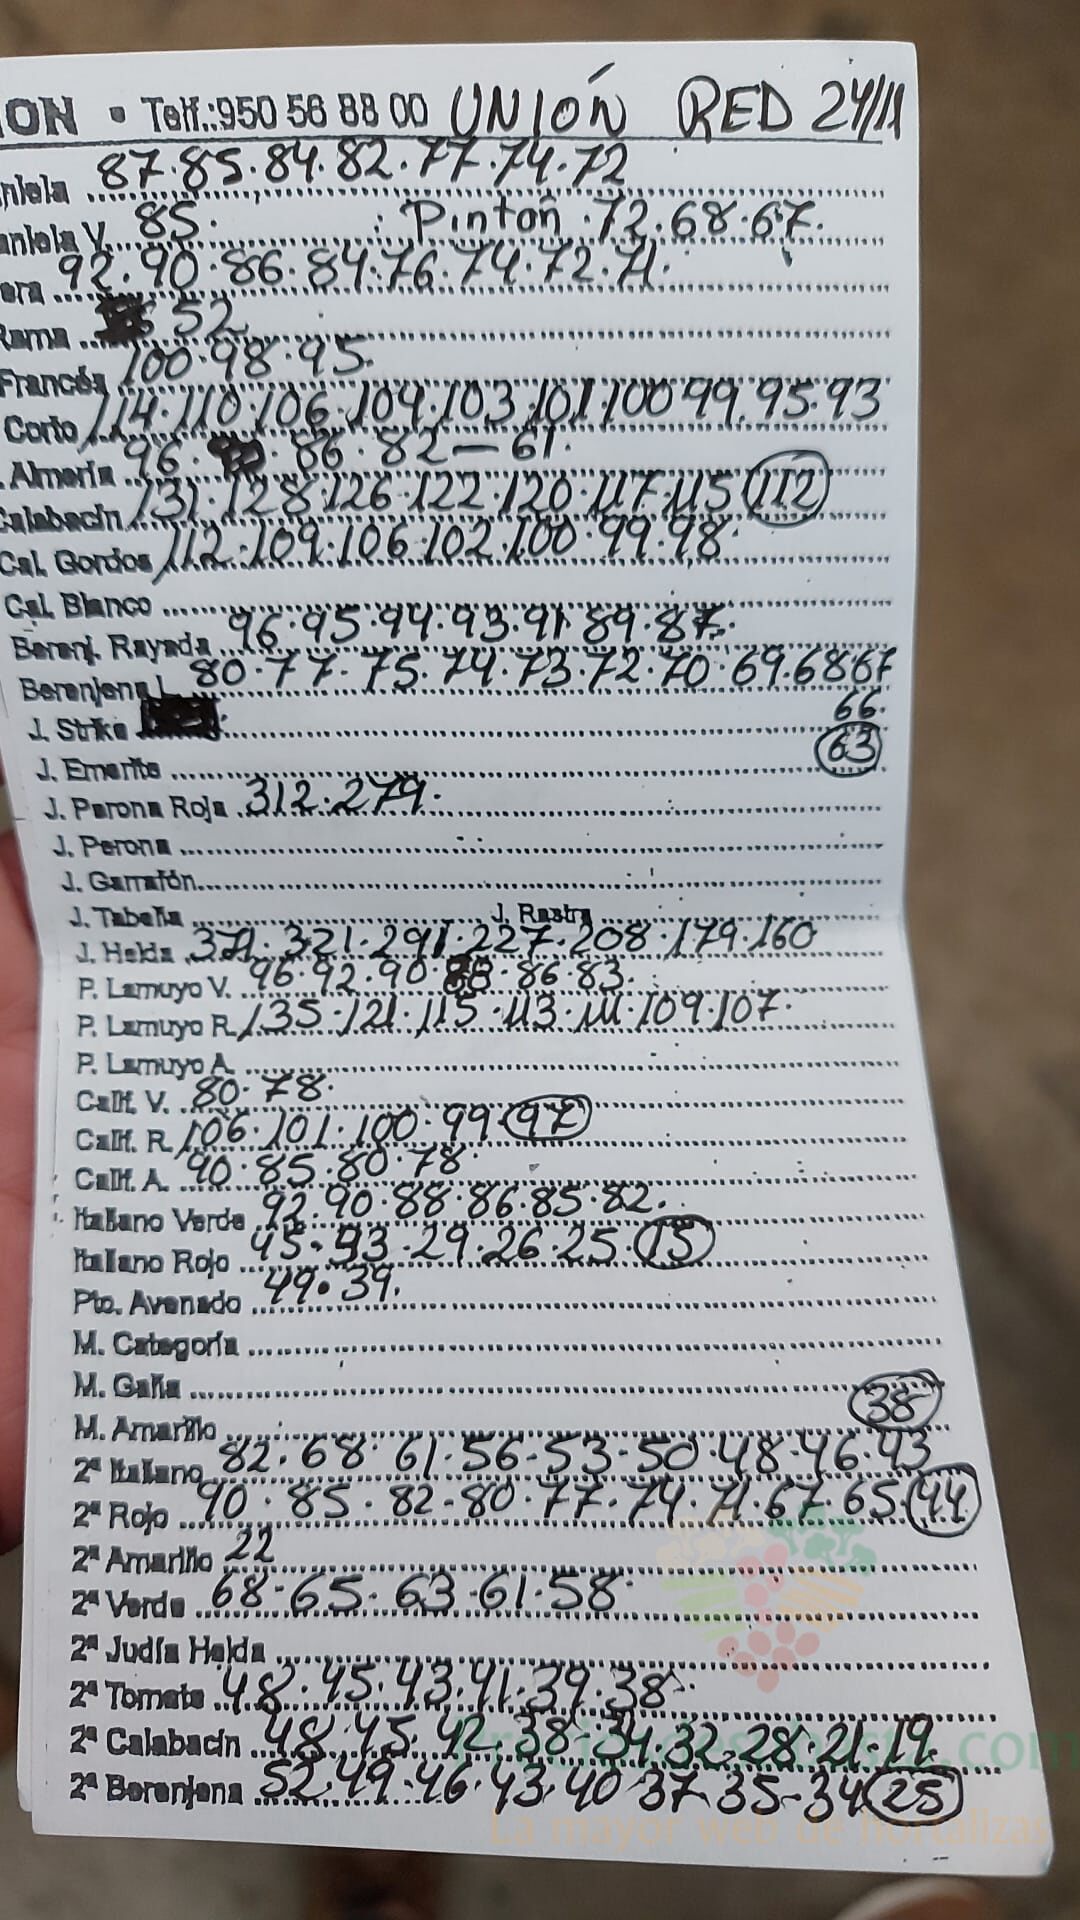 ION • Telf.:950 56 88 00 UNIÓN RED 24/11
niela 87.85.84.82.77.74.72
aniela V. 85. Pintón .72.68.67.
era 92.90.86.84.76.74.72.71.
Rama 52
Francés 100.98.95.
Corto 114.110.106.104.103.101.100 99.95.93
. Almería 96. 86.82-61.
Calabacín 131.128.126.122.120.117.115 112
Cal. Gordos 112.109.106.102.100.99.98
Cal. Blanco
Berenj. Rayada 96.95.94.93.91 89.87.
Berenjena L 80.77.75.74.73.72.70.69.68 67
66.
J. Strike
63
J. Emerite
J. Perona Roja 312.279.
J. Perona
J. Garrafón
J. Tabella J. Rastra
J. Helda 371.321.291.227.208.179.160
P. Lamuyo V. 96.92.90.88.86.83.
P. Lamuyo R. 135.121.115.113.111.109.107.
P. Lamuyo A.
Calif. V. 80.78.
Calif. R. 106.101.100.99.97
Calif. A. 90.85.80.78.
Italiano Verde 92.90.88.86.85.82.
Italiano Rojo 45. 29.26.25.15
Pto. Avenado 49.39.
M. Categoría
M. Galia
38
M. Amarillo
2ª Italiano 82.68.61.56-53-50.48.46.43
2ª Rojo 90.85.82-80.77.74.71.67.65.44
2ª Amarillo 22
2ª Verde 68-65.63.61.58
2ª Judía Helda
2ª Tomate 48.45.43.41.39.38
2ª Calabacín 48.45.42.38.34.32.28.21.19.
2ª Berenjena 52.49.46.43.40.37.35-34 25
La mayor web de hortalizas